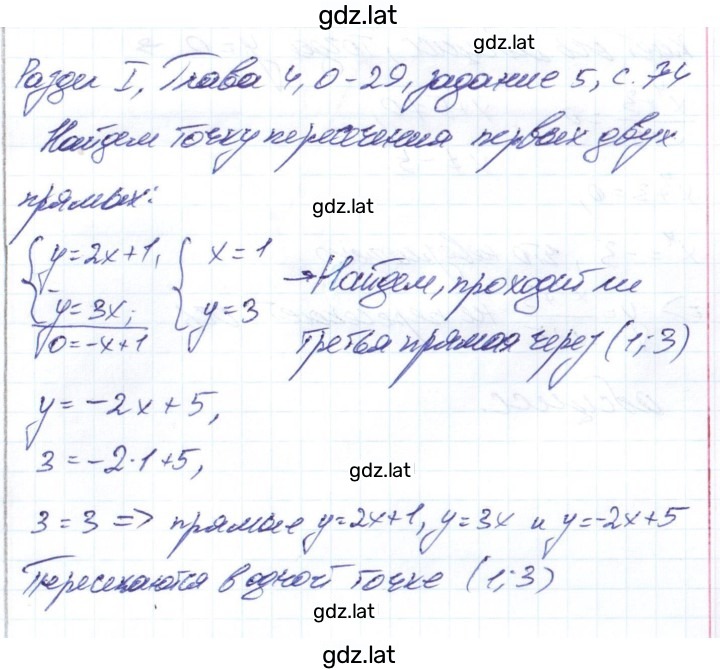 gdz.lat
gdz.lat
Раздел I, Глава 4, О-29, задание 5, с. 74
Найдем точку пересечения первых двух
прямых:
gdz.lat
{ y=2x+1, { x=1
- y=3x; y=3
0=-x+1
→ Найдем, проходит ли
третья прямая через (1;3)
y=-2x+5,
3=-2·1+5,
gdz.lat
3=3 => прямые y=2x+1, y=3x и y=-2x+5
Пересекаются в одной точке (1;3)
gdz.lat
gdz.lat